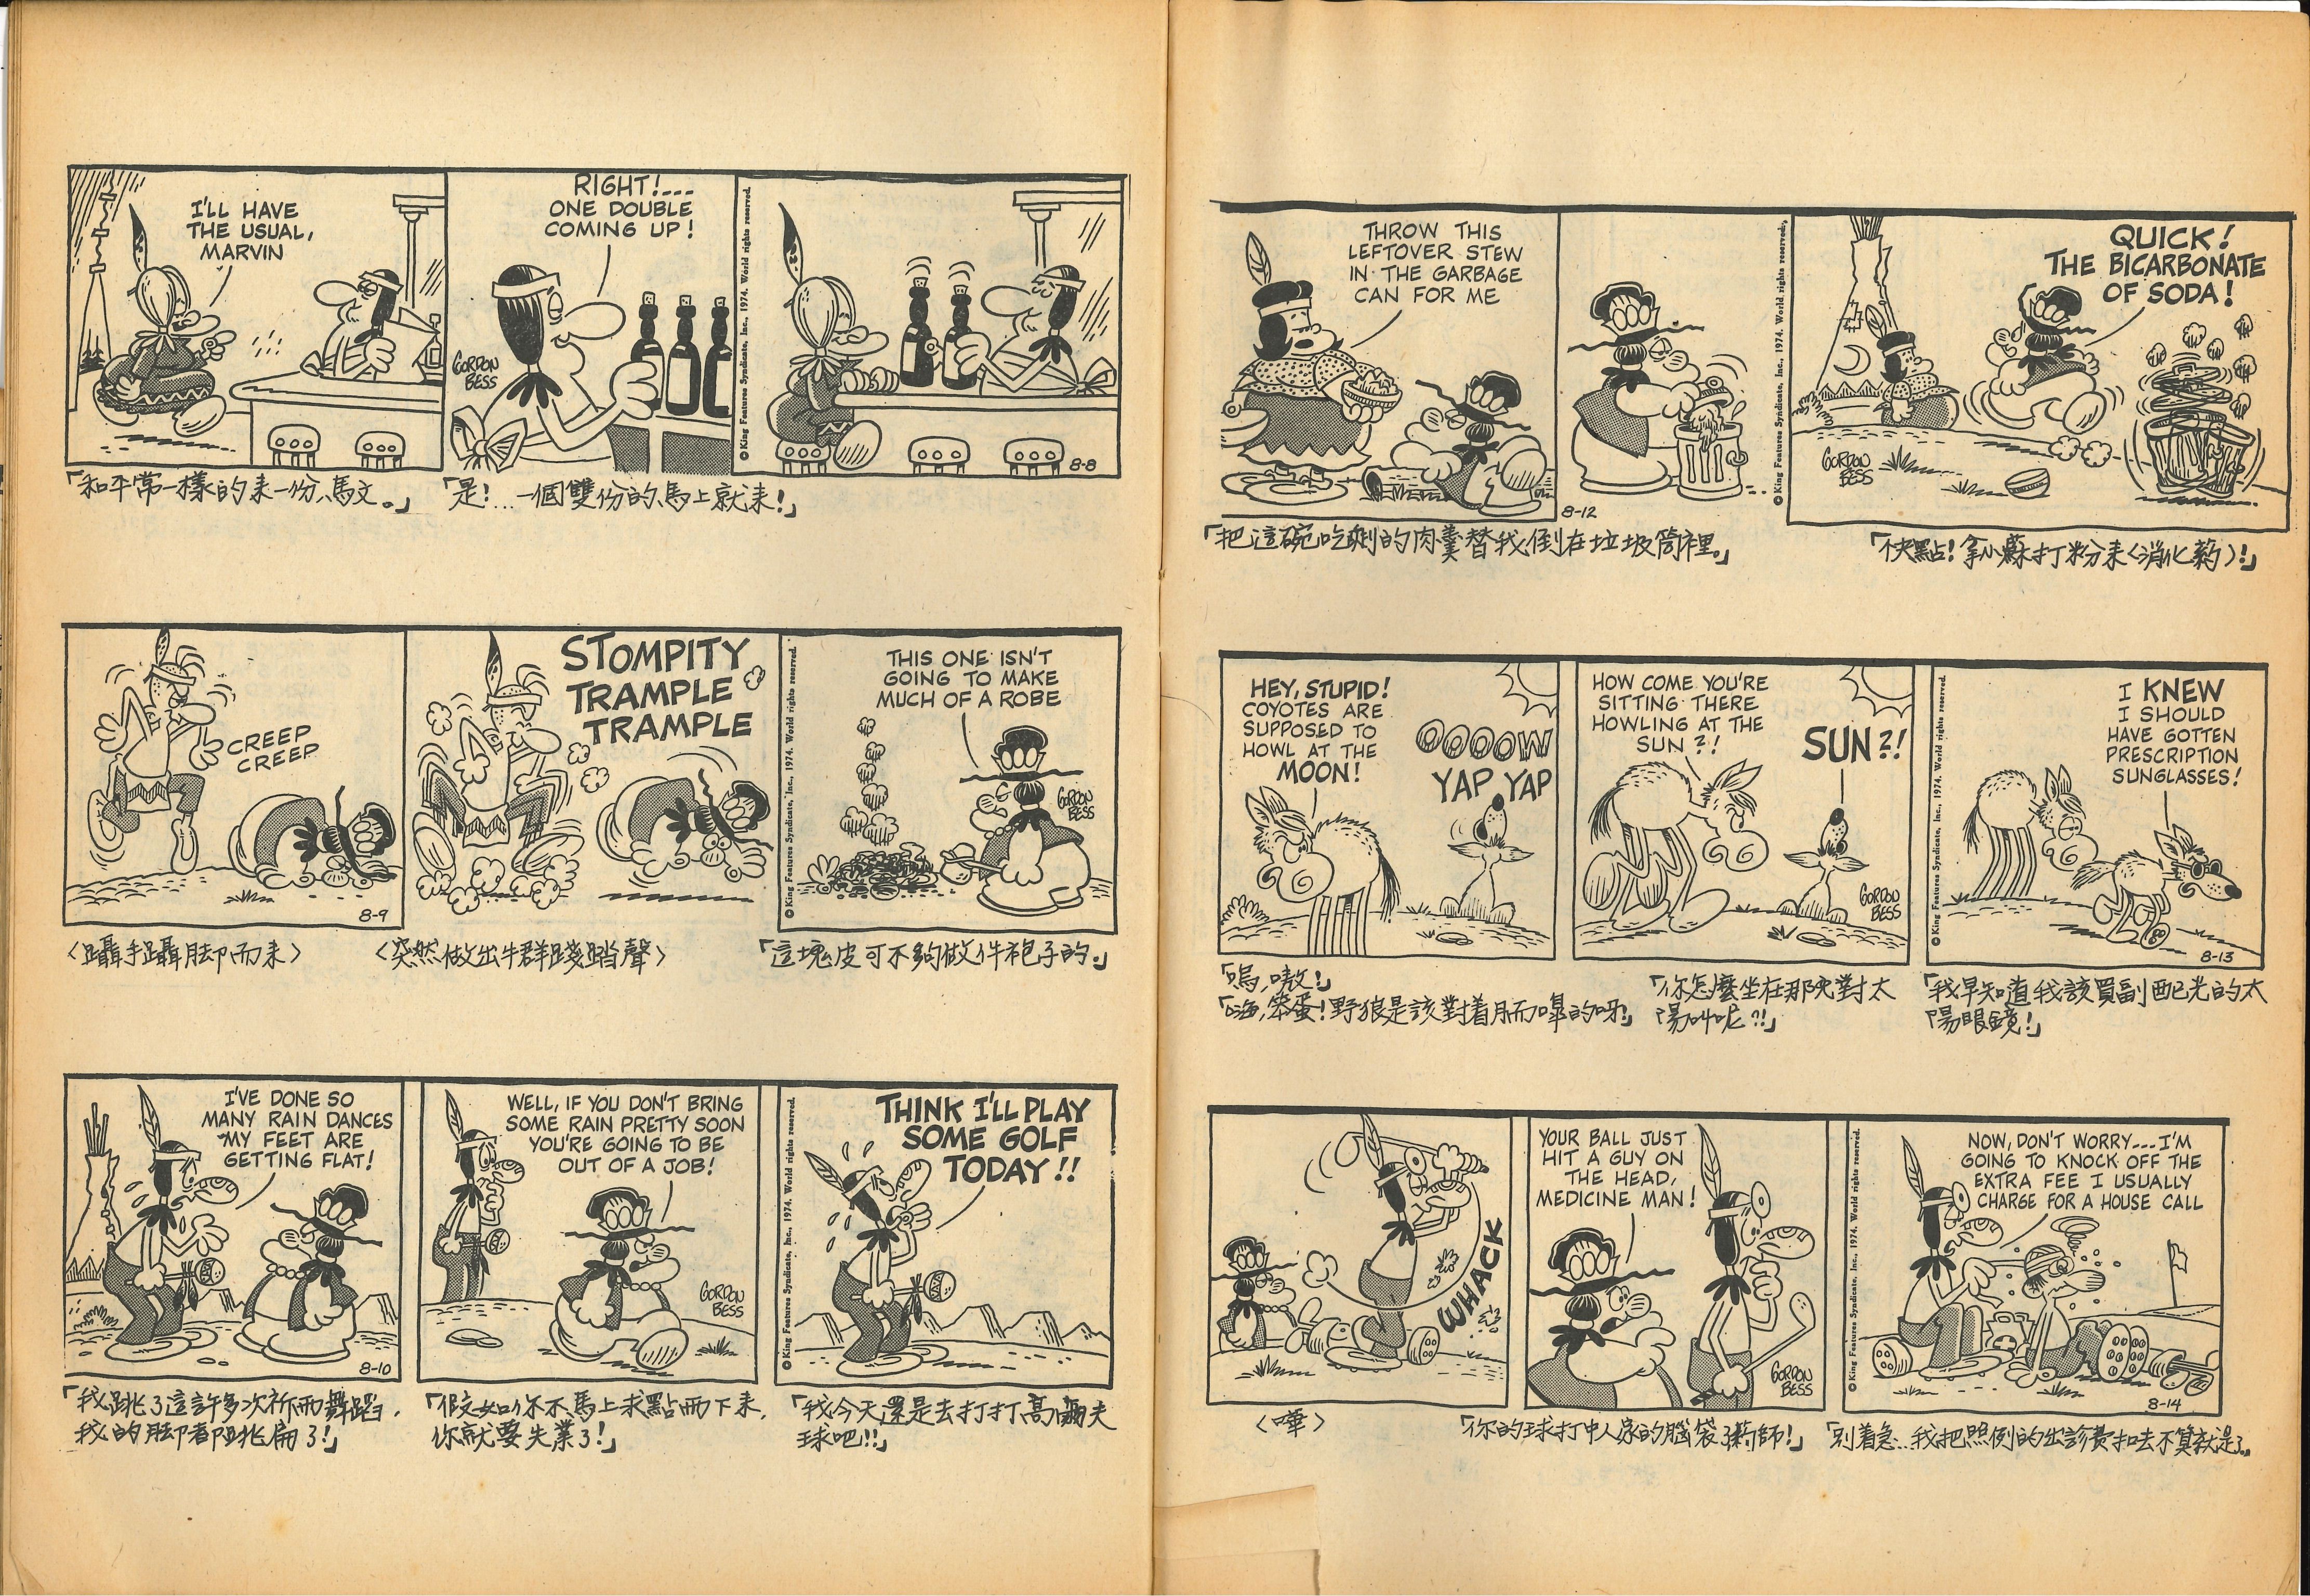 I'LL HAVE
THE USUAL,
MARVIN
RIGHT!---
ONE DOUBLE
COMING UP!
GORDON
BESS
© King Features Syndicate, Inc., 1974. World rights reserved.
8-8
「和平常一樣的来一份、馬文。」
「是!…一個雙份的、馬上就来!」
CREEP
CREEP
8-9
STOMPITY
TRAMPLE
TRAMPLE
© King Features Syndicate, Inc., 1974. World rights reserved.
THIS ONE ISN'T
GOING TO MAKE
MUCH OF A ROBE
GORDON
BESS
〈躡手躡脚而来〉
〈突然做出牛群踐踏聲〉
「這塊皮可不夠做件袍子的.」
I'VE DONE SO
MANY RAIN DANCES
MY FEET ARE
GETTING FLAT!
8-10
WELL, IF YOU DON'T BRING
SOME RAIN PRETTY SOON
YOU'RE GOING TO BE
OUT OF A JOB!
GORDON
BESS
© King Features Syndicate, Inc., 1974. World rights reserved.
THINK I'LL PLAY
SOME GOLF
TODAY!!
「我跳了這許多次祈雨舞蹈,
我的脚都跳扁了!」
「假如你不馬上求點雨下来,
你就要失業了!」
「我今天還是去打打高爾夫
球吧!!」
THROW THIS
LEFTOVER STEW
IN THE GARBAGE
CAN FOR ME
8-12
© King Features Syndicate, Inc., 1974. World rights reserved.
QUICK!
THE BICARBONATE
OF SODA!
GORDON
BESS
「把這碗吃剩的肉羹替我倒在垃圾筒裡。」
「快點!拿小蘇打粉来〈消化葯〉!」
HEY, STUPID!
COYOTES ARE
SUPPOSED TO
HOWL AT THE
MOON!
OOOOW
YAP YAP
HOW COME YOU'RE
SITTING THERE
HOWLING AT THE
SUN?!
SUN?!
GORDON
BESS
© King Features Syndicate, Inc., 1974. World rights reserved.
I KNEW
I SHOULD
HAVE GOTTEN
PRESCRIPTION
SUNGLASSES!
8-13
「嗚,嗷!」
「嗨,笨蛋!野狼是該對着月而嘷的呀!」
「你怎麼坐在那兒對太
陽叫呢?!」
「我早知道我該買副配光的太
陽眼鏡!」
WHACK
YOUR BALL JUST
HIT A GUY ON
THE HEAD,
MEDICINE MAN!
GORDON
BESS
© King Features Syndicate, Inc., 1974. World rights reserved.
NOW, DON'T WORRY---I'M
GOING TO KNOCK OFF THE
EXTRA FEE I USUALLY
CHARGE FOR A HOUSE CALL
8-14
〈嘩〉
「你的球打中人家的腦袋了葯師!」
「别着急…我把照例的出診費扣去不算就是了。」